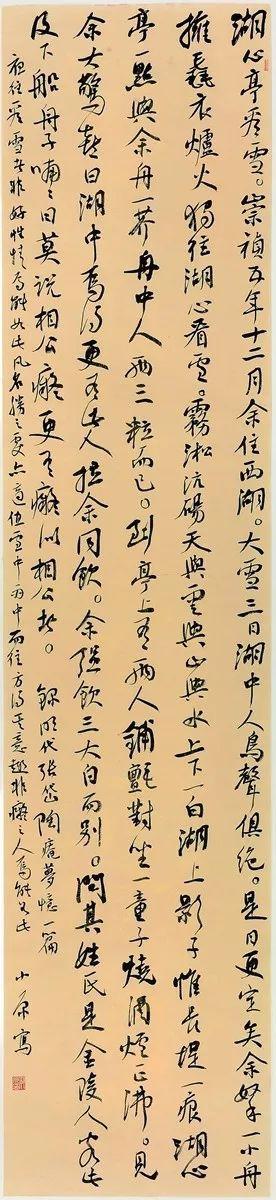 湖心亭看雪。崇禎五年十二月余住西湖。大雪三日湖中人鳥聲俱絕。是日更定矣余拏一小舟
擁毳衣爐火獨往湖心看雪。霧淞沆碭天與雲與山與水上下一白湖上影子惟長堤一痕湖心
亭一點與余舟一芥舟中人兩三粒而已。到亭上有兩人鋪氈對坐一童子燒酒爐正沸。見
余大驚喜曰湖中焉得更有此人拉余同飲。余強飲三大白而別。問其姓氏是金陵人客此
及下船舟子喃々曰莫說相公癡更有癡似相公者。 錄明代張岱陶庵夢憶一篇
夜往看雪者非好性情焉能如此凡名勝之處亦適值雪中雨中而往方得其意趣非癡之人焉能如此 小原寫